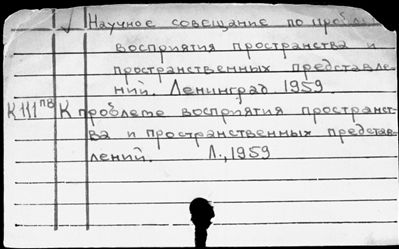 √ Научное совещание по пробле
восприятия пространства и
пространственных представле-
нии. Ленинград 1959
К111пв К проблеме восприятия пространст-
ва и пространственных представ-
лений. Л., 1959